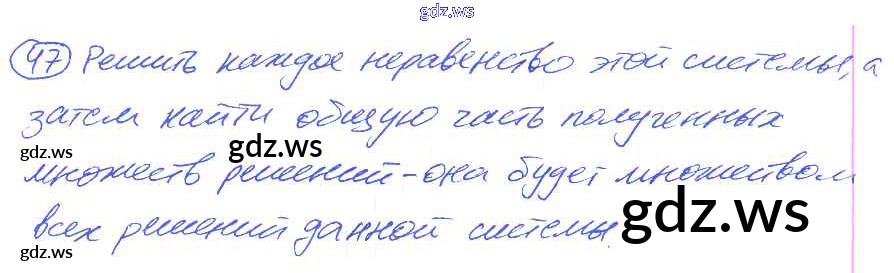 gdz.ws
47 Решить каждое неравенство этой системы, а
затем найти общую часть полученных
gdz.ws gdz.ws
множеств решений - она будет множеством
gdz.ws
всех решений данной системы.
gdz.ws